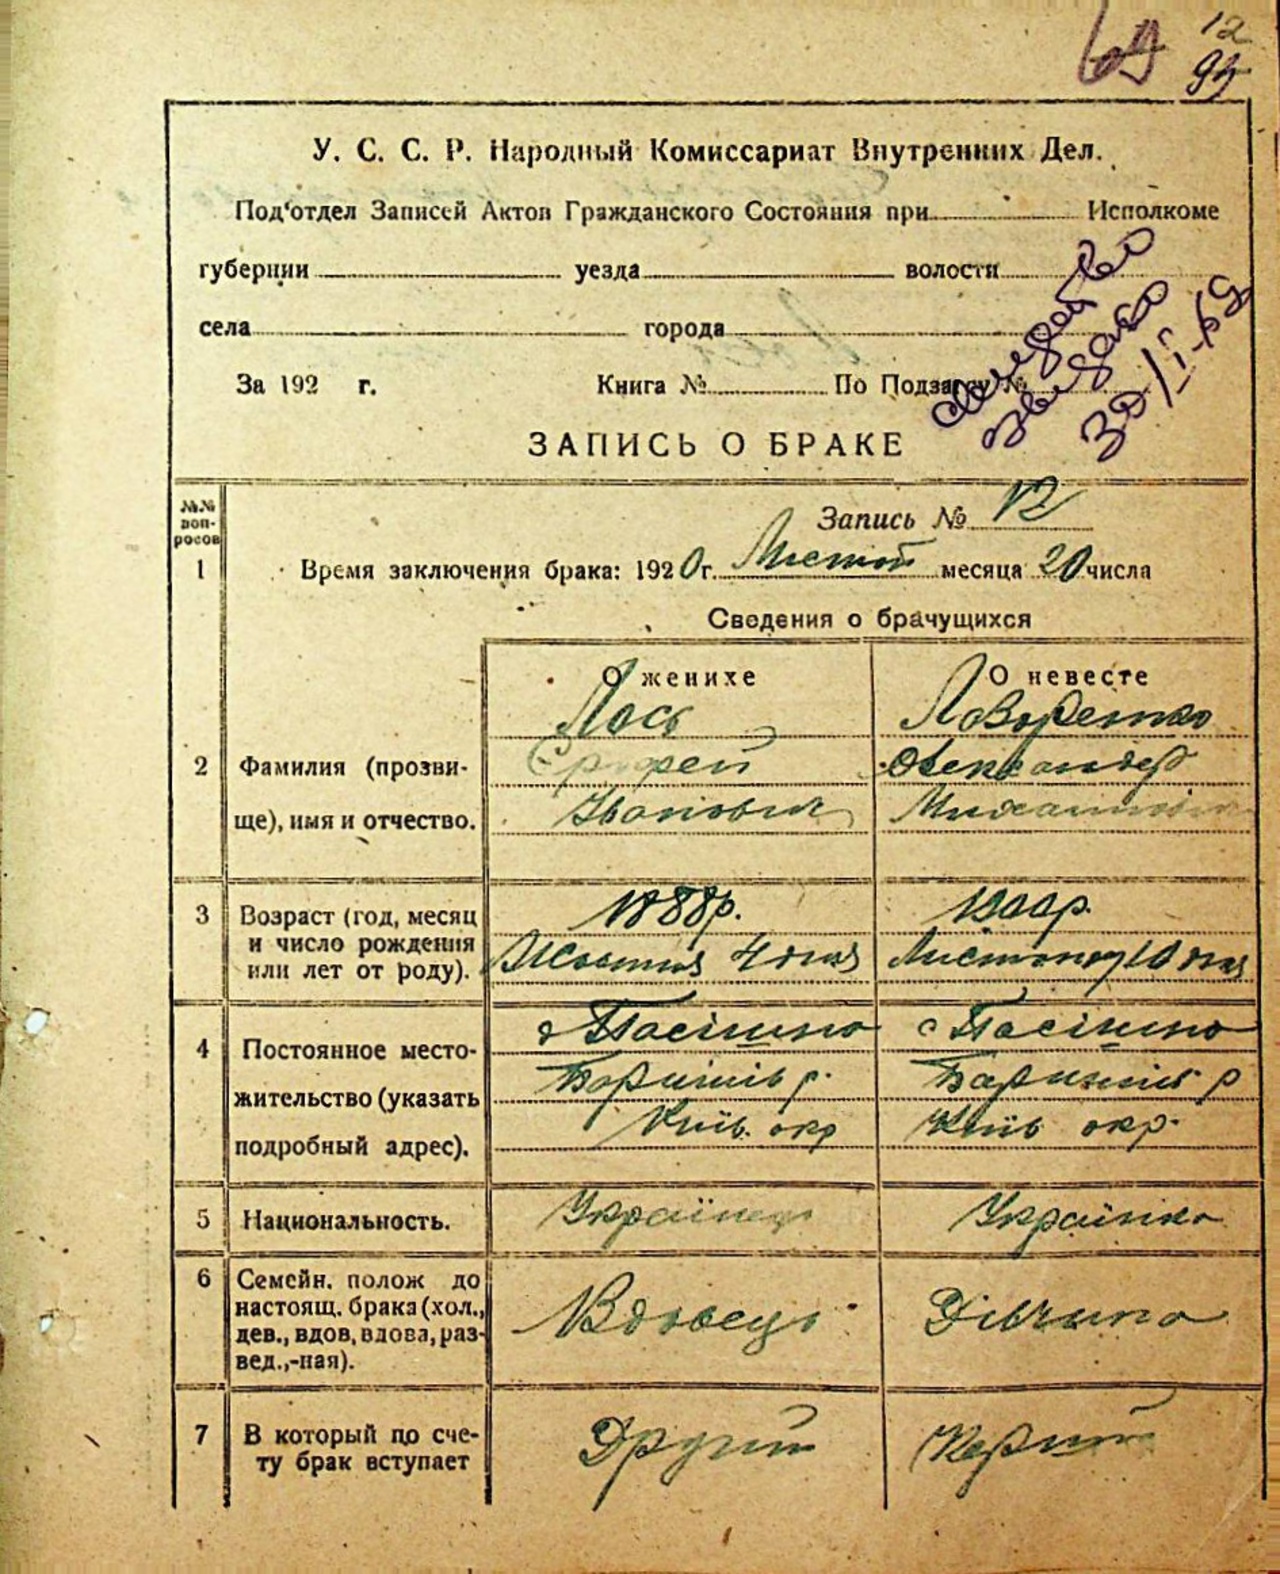 12
У. С. С. Р. Народный Комиссариат Внутренних Дел.
Под'отдел Записей Актов Гражданского Состояния при Исполкоме
губернии уезда волости
села города
За 192 г. Книга № По Подзагсу №
30/II-69
ЗАПИСЬ О БРАКЕ
№№ вопросов
Запись № 12
1 Время заключения брака: 1920г. месяца 20 числа
Сведения о брачущихся
О женихе О невесте
Лось
2 Фамилия (прозви-
ще), имя и отчество.
Іванович
3 Возраст (год, месяц
и число рождения
или лет от роду).
1888р. 1900р.
Жовтня 4 дня Листопад 10 дня
4 Постоянное место-
жительство (указать
подробный адрес).
Київ. окр Київ окр.
5 Национальность. Українець Українка
6 Семейн. полож до
настоящ. брака (хол.,
дев., вдов, вдова, раз-
вед.,-ная).
Вдовець Дівчина
7 В который по сче-
ту брак вступает
Другий Перший